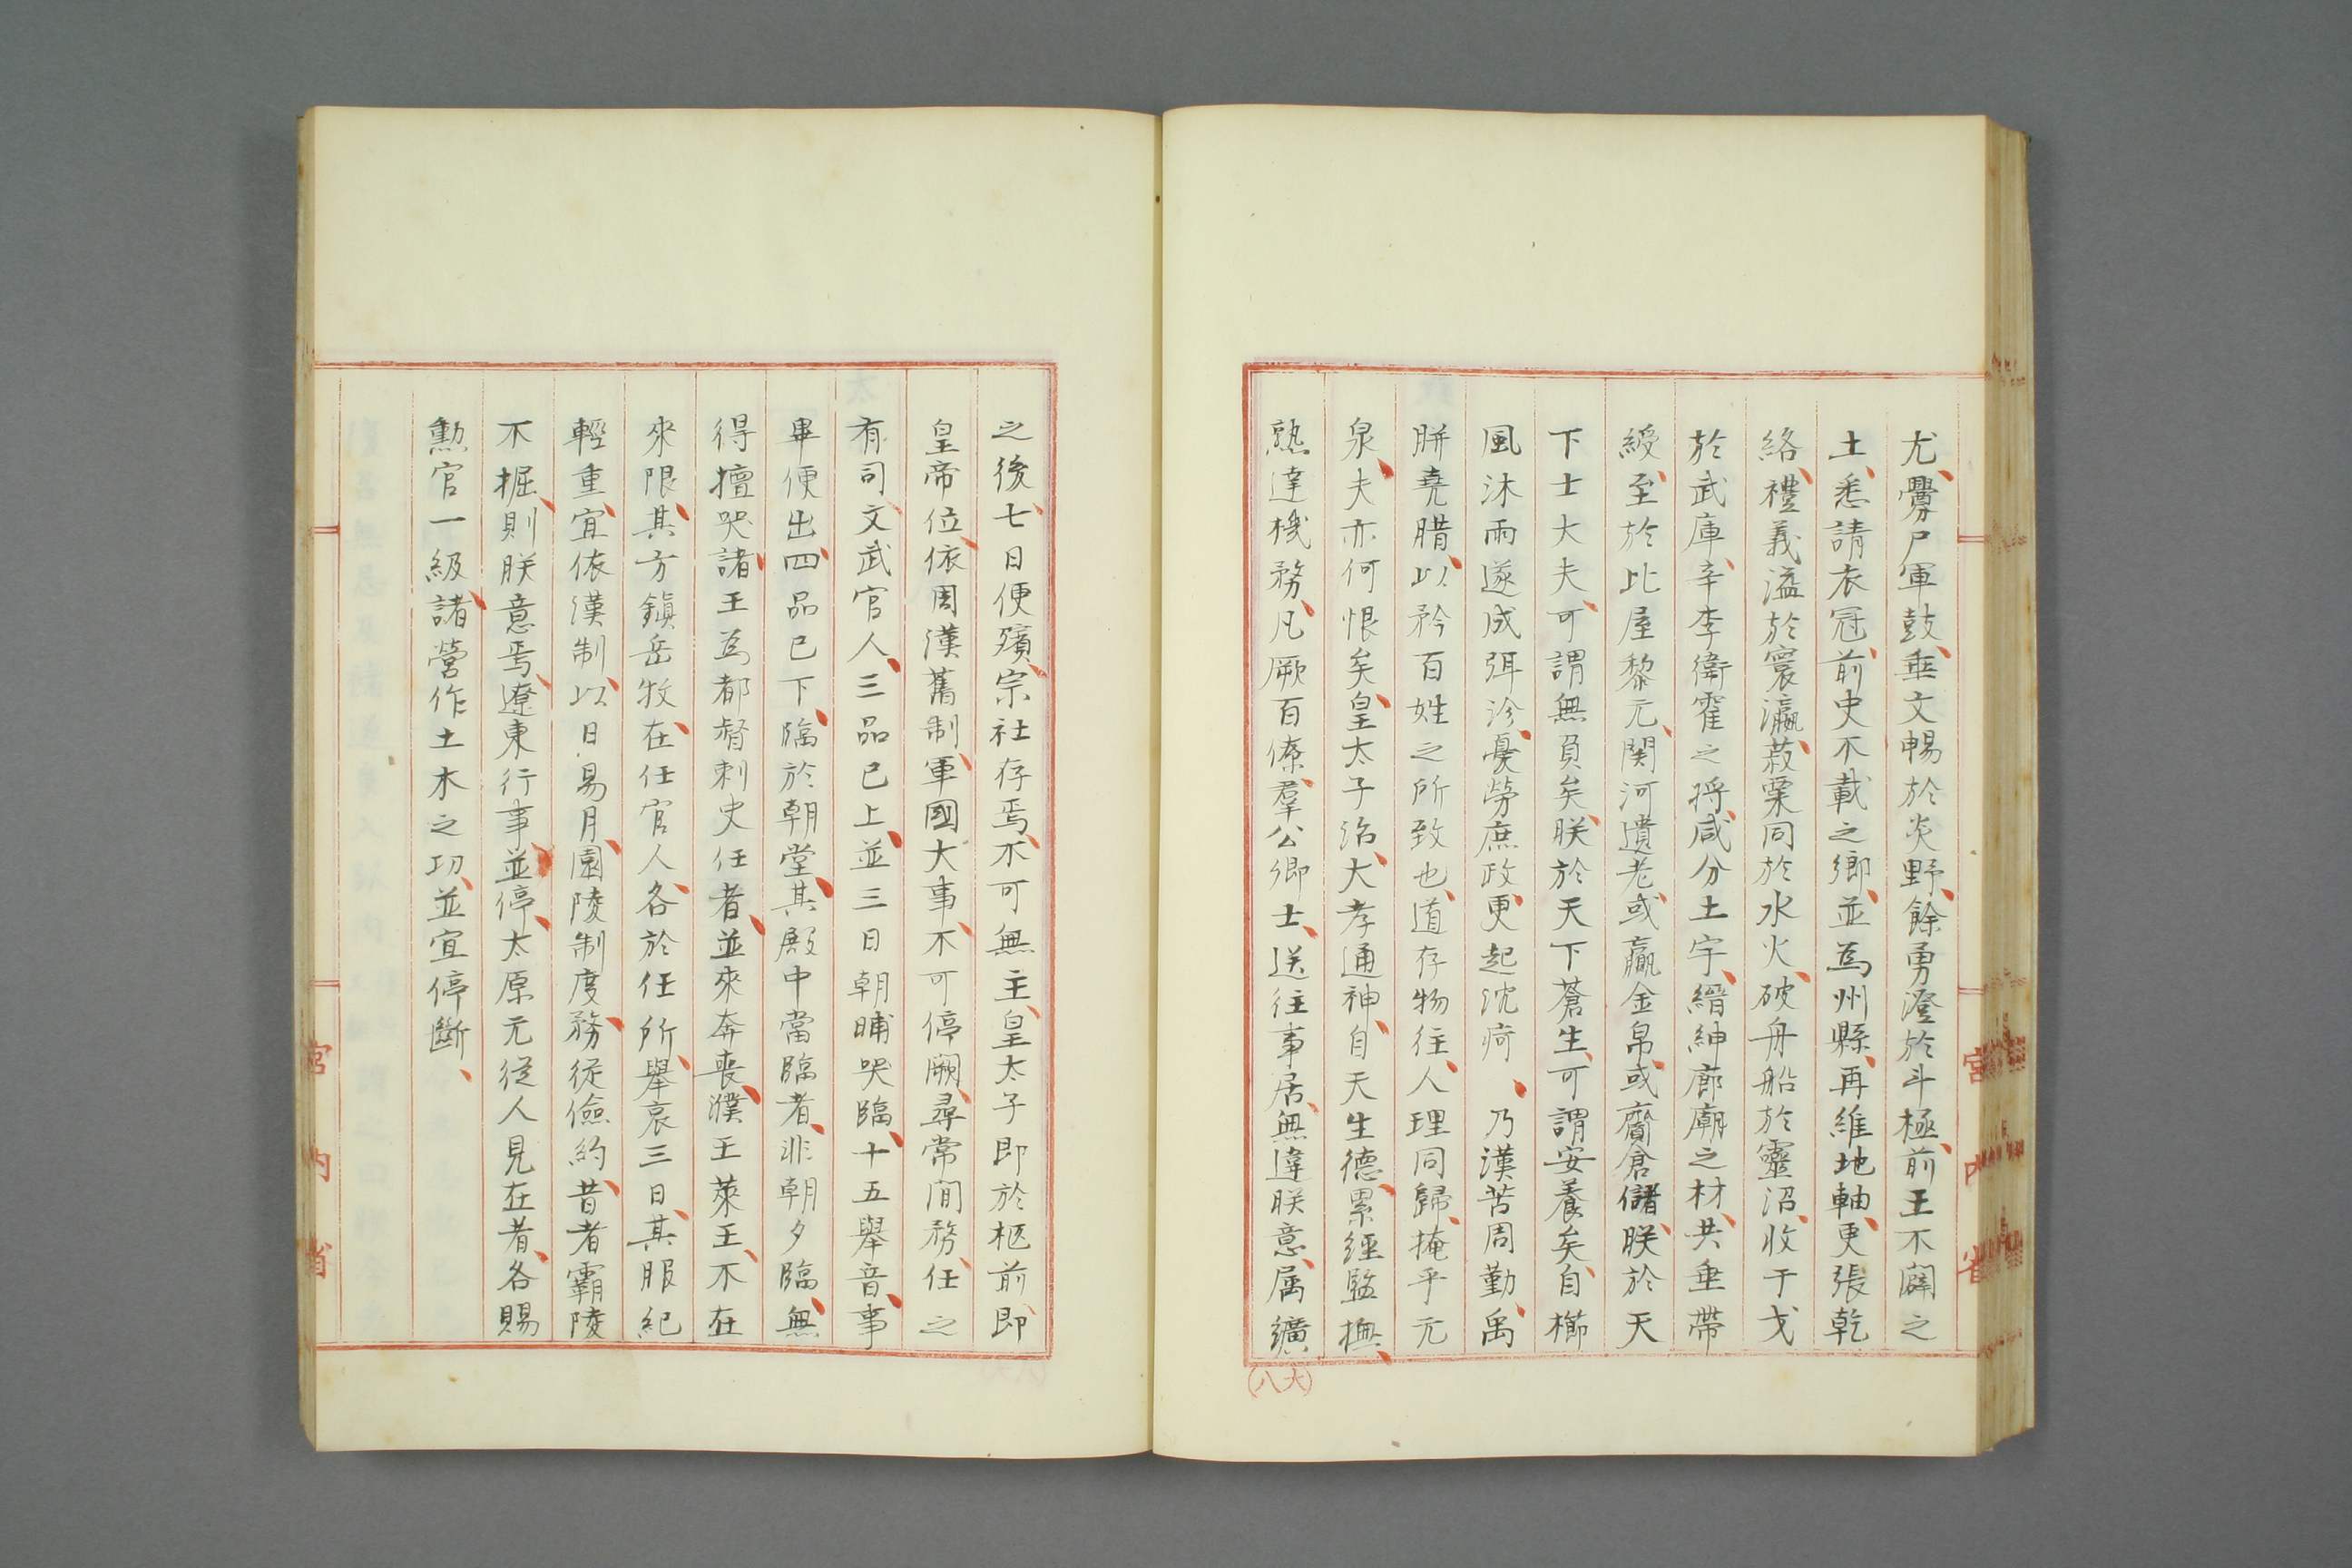 尤、釁尸軍鼓、垂文暢於炎野、餘勇澄於斗極、前王不闢之
土、悉請衣冠、前史不載之鄉、並為州縣、再維地軸、更張乾
絡、禮義溢於寰瀛、菽粟同於水火、破舟船於靈沼、收干戈
於武庫、辛李衛霍之将、咸分土宇、縉紳廊廟之材、共垂帶
綬、至於比屋黎元、関河遺老、或贏金帛、或齎倉儲、朕於天
下士大夫、可謂無負矣、朕於天下蒼生、可謂安養矣、自櫛
風沐雨遂成弭沴、憂勞庶政、更起沈痾、乃漢苦周勤、禹
胼堯腊、以矜百姓之所致也、道存物往、人理同歸、掩乎元
泉、夫亦何恨矣、皇太子治、大孝通神、自天生德、累經監撫、
熟達機務、凡厥百僚、羣公卿士、送往事居、無違朕意、属纊
(大八)
之後、七日便殯、宗社存焉、不可無主、皇太子即於柩前即
皇帝位、依周漢舊制、軍國大事、不可停闕、尋常閒務、任之
有司、文武官人、三品已上、並三日朝晡哭臨、十五舉音、事
畢便出、四品已下、臨於朝堂、其殿中當臨者、非朝夕臨、無
得擅哭、諸王為都督刺史任者、並來奔喪、濮王萊王、不在
來限、其方鎮岳牧、在任官人、各於任所、舉哀三日、其服紀
輕重、宜依漢制、以日易月、園陵制度、務從儉約、昔者霸陵
不掘、則朕意焉、遼東行事、並停、太原元從人見在者、各賜
勲官一級、諸營作土木之功、並宜停斷、
宮内省
宮内省